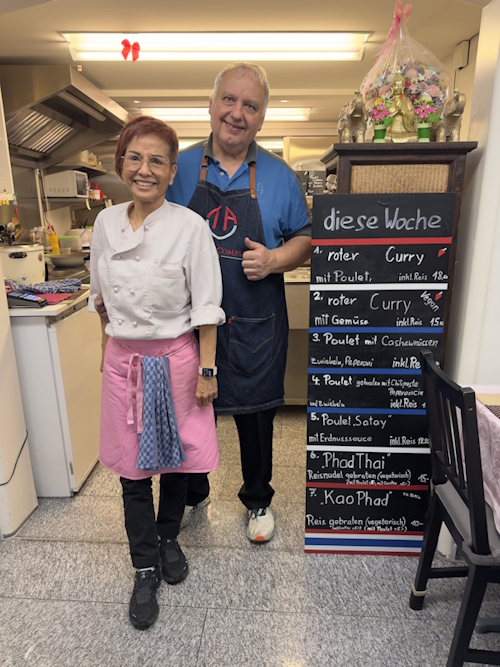 diese Woche
1. roter Curry
mit Poulet, inkl.Reis 18.-
2. roter Curry Vegan
mit Gemüse inkl.Reis 15.-
3. Poulet mit Cashewnüssen
zwiebeln, Peperoni inkl.Rei
4. Poulet gebraten mit Chilipaste
Peperoncini
und zwiebeln inkl.Reis
5. Poulet „Satay"
mit Erdnusssauce inkl.Reis 18.50
6. „Phad Thai"
Reisnudel gebraten (vegetarisch) 15.-
7. „Kao Phad"
Reis gebraten (vegetarisch) 10.-